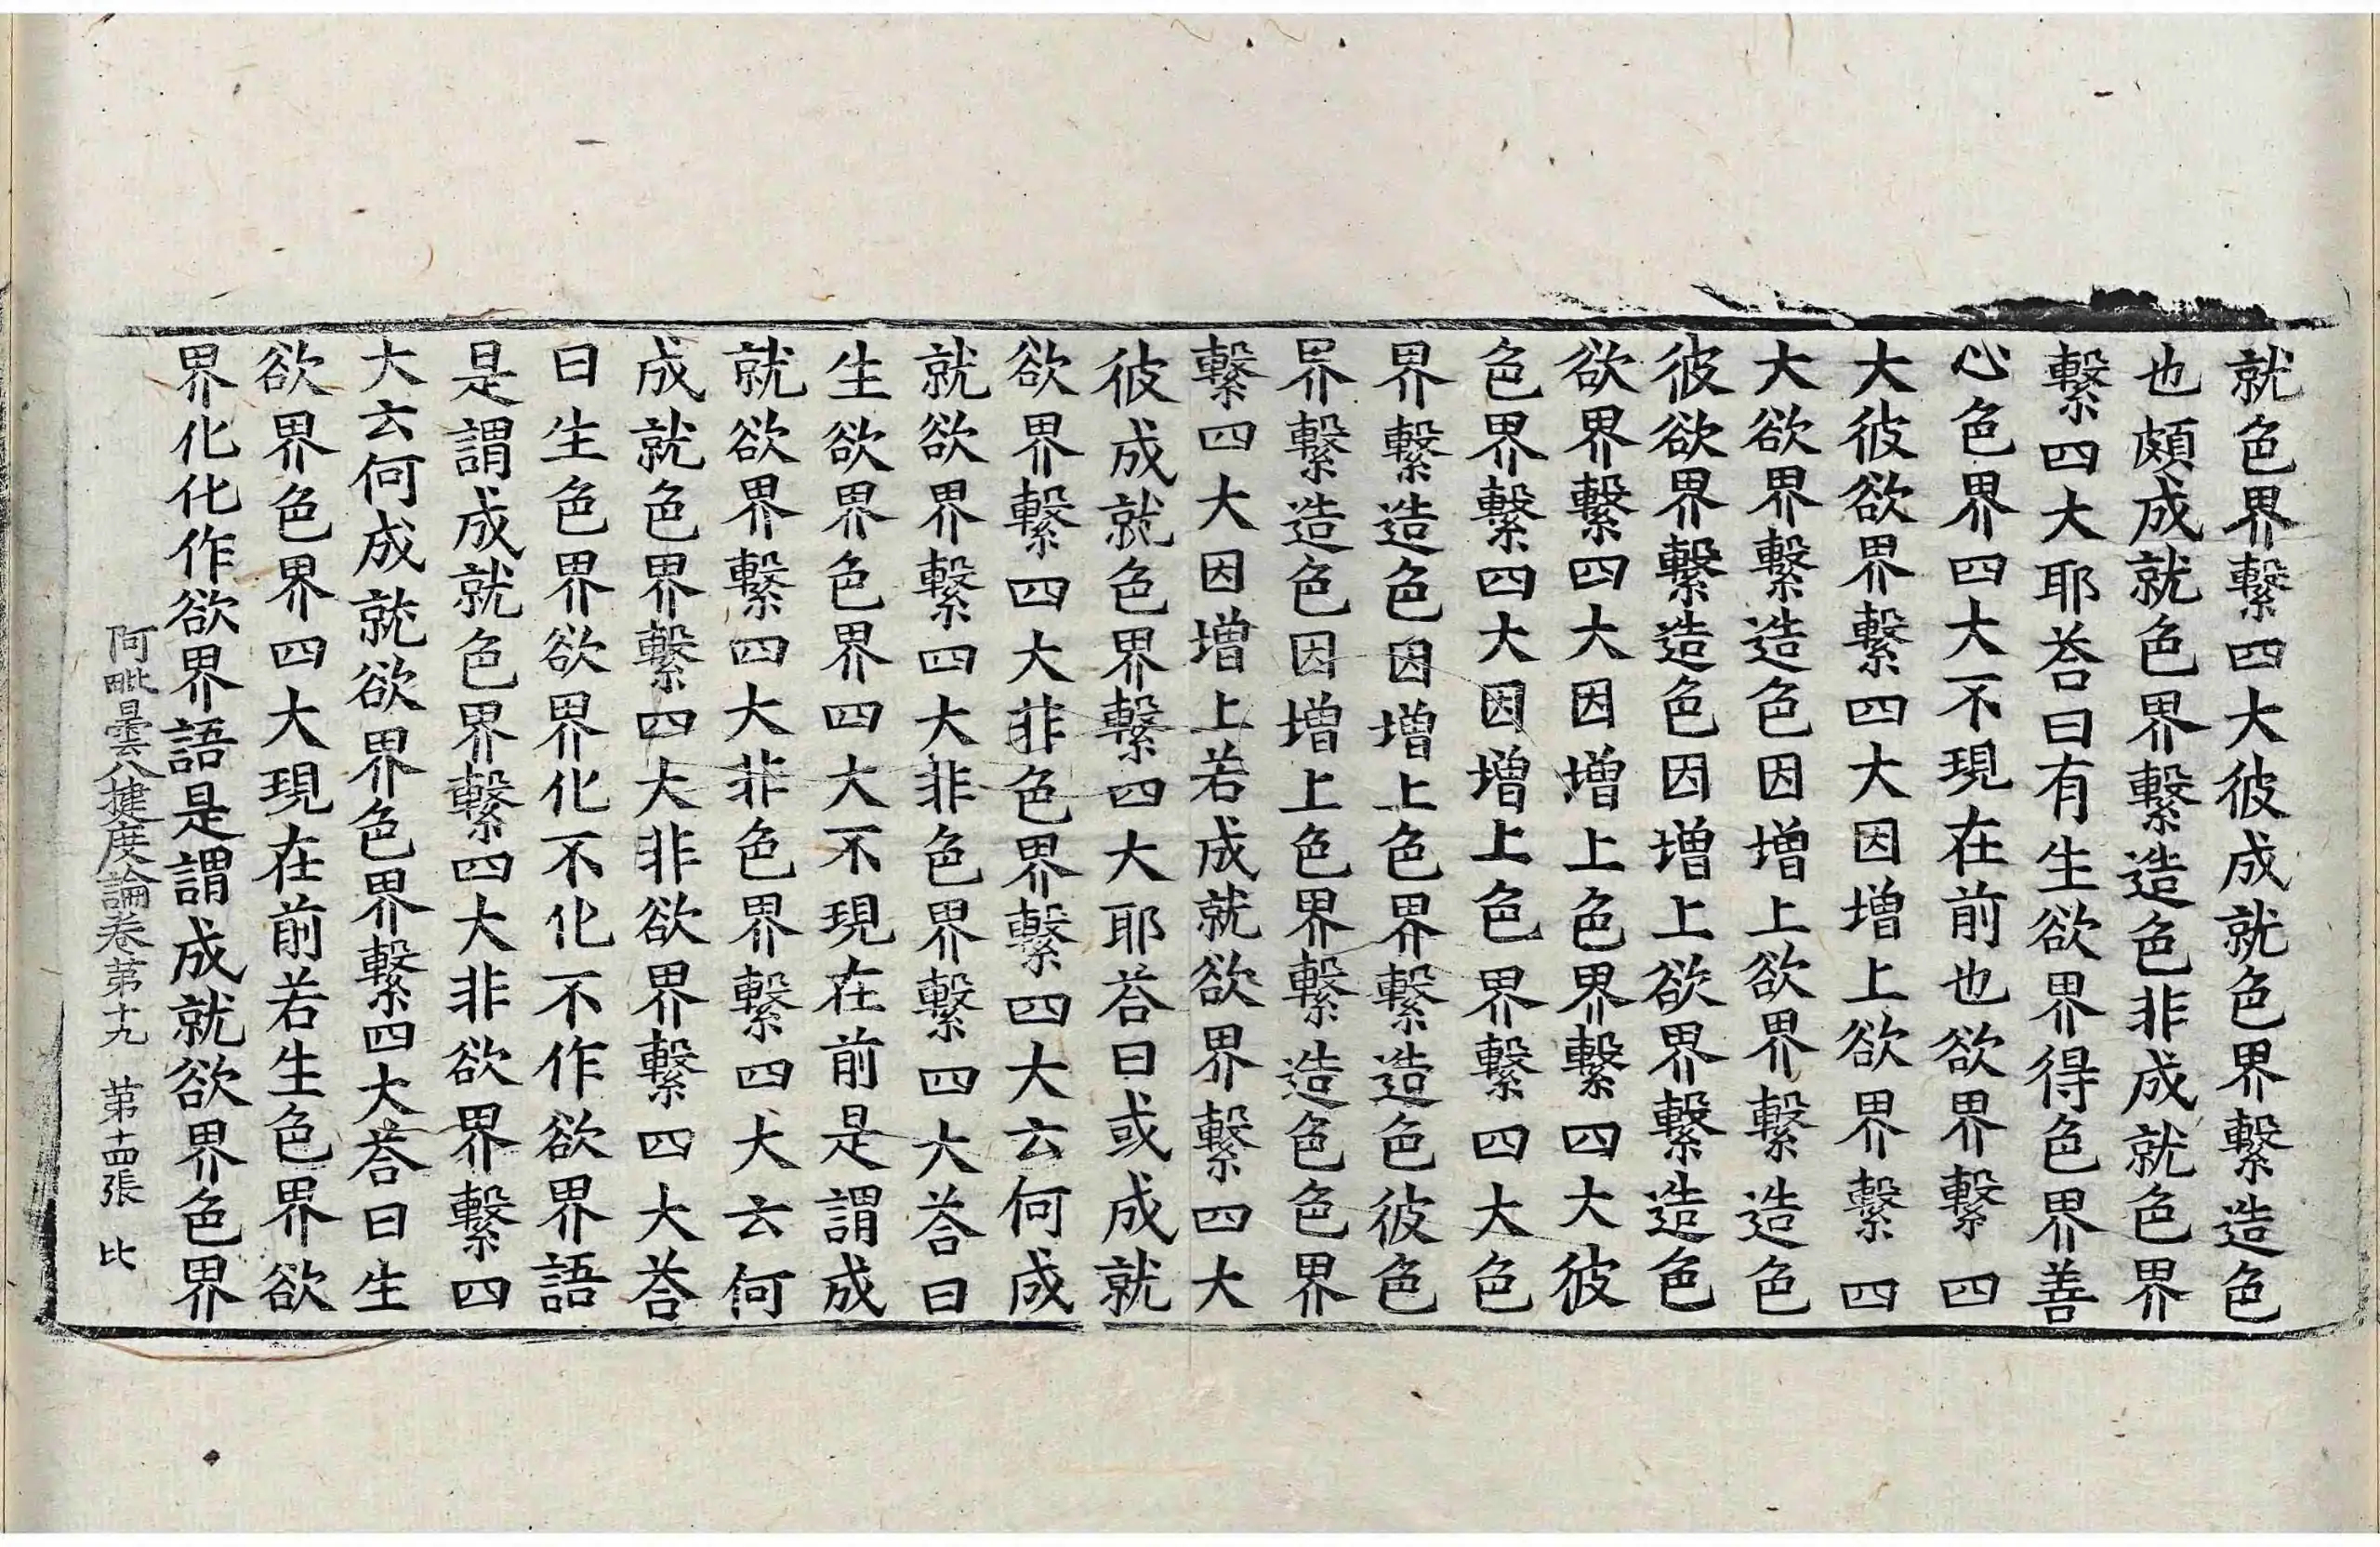 就色界繫四大彼成就色界繫造色
也頗成就色界繫造色非成就色界
繫四大耶荅曰有生欲界得色界善
心色界四大不現在前也欲界繫四
大彼欲界繫四大因增上欲界繫四
大欲界繫造色因增上欲界繫造色
彼欲界繫造色因增上欲界繫造色
欲界繫四大因增上色界繫四大彼
色界繫四大因增上色界繫四大色
界繫造色因增上色界繫造色彼色
界繫造色因增上色界繫造色色界
繫四大因增上若成就欲界繫四大
彼成就色界繫四大耶荅曰或成就
欲界繫四大非色界繫四大云何成
就欲界繫四大非色界繫四大荅曰
生欲界色界四大不現在前是謂成
就欲界繫四大非色界繫四大云何
成就色界繫四大非欲界繫四大荅
曰生色界欲界化不化不作欲界語
是謂成就色界繫四大非欲界繫四
大云何成就欲界色界繫四大荅曰生
欲界色界四大現在前若生色界欲
界化化作欲界語是謂成就欲界色界
阿毗曇八揵度論卷第十九 第十四張 比